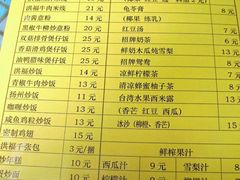 洪福牛肉米线 21元 龟苓膏
肉酱意粉 14元 (椰果 炼乳)
黑椒牛柳炒意粉 20元 红豆汤 8元
双菇排骨煲仔饭 25元 招牌奶茶 6元
香菇滑鸡煲仔饭 25元 鲜奶木瓜炖雪梨
油鸭腊味煲仔饭 28元 招牌鸳鸯 8元
洪福炒饭 15元 凉鲜柠檬茶
青椒牛肉炒饭 15元 清凉蜂蜜柚子茶
扬州炒饭 11元 台湾水果西米露 13元
咖喱炒饭 13元 (香芒 红豆 西米)
咸鱼鸡粒炒饭 13元 冰沙(柳橙、香芒)
密制鸡翅 15元
洪福千张包 3元 鲜榨果汁
炒年糕 10元 西瓜汁 9元 雪梨汁